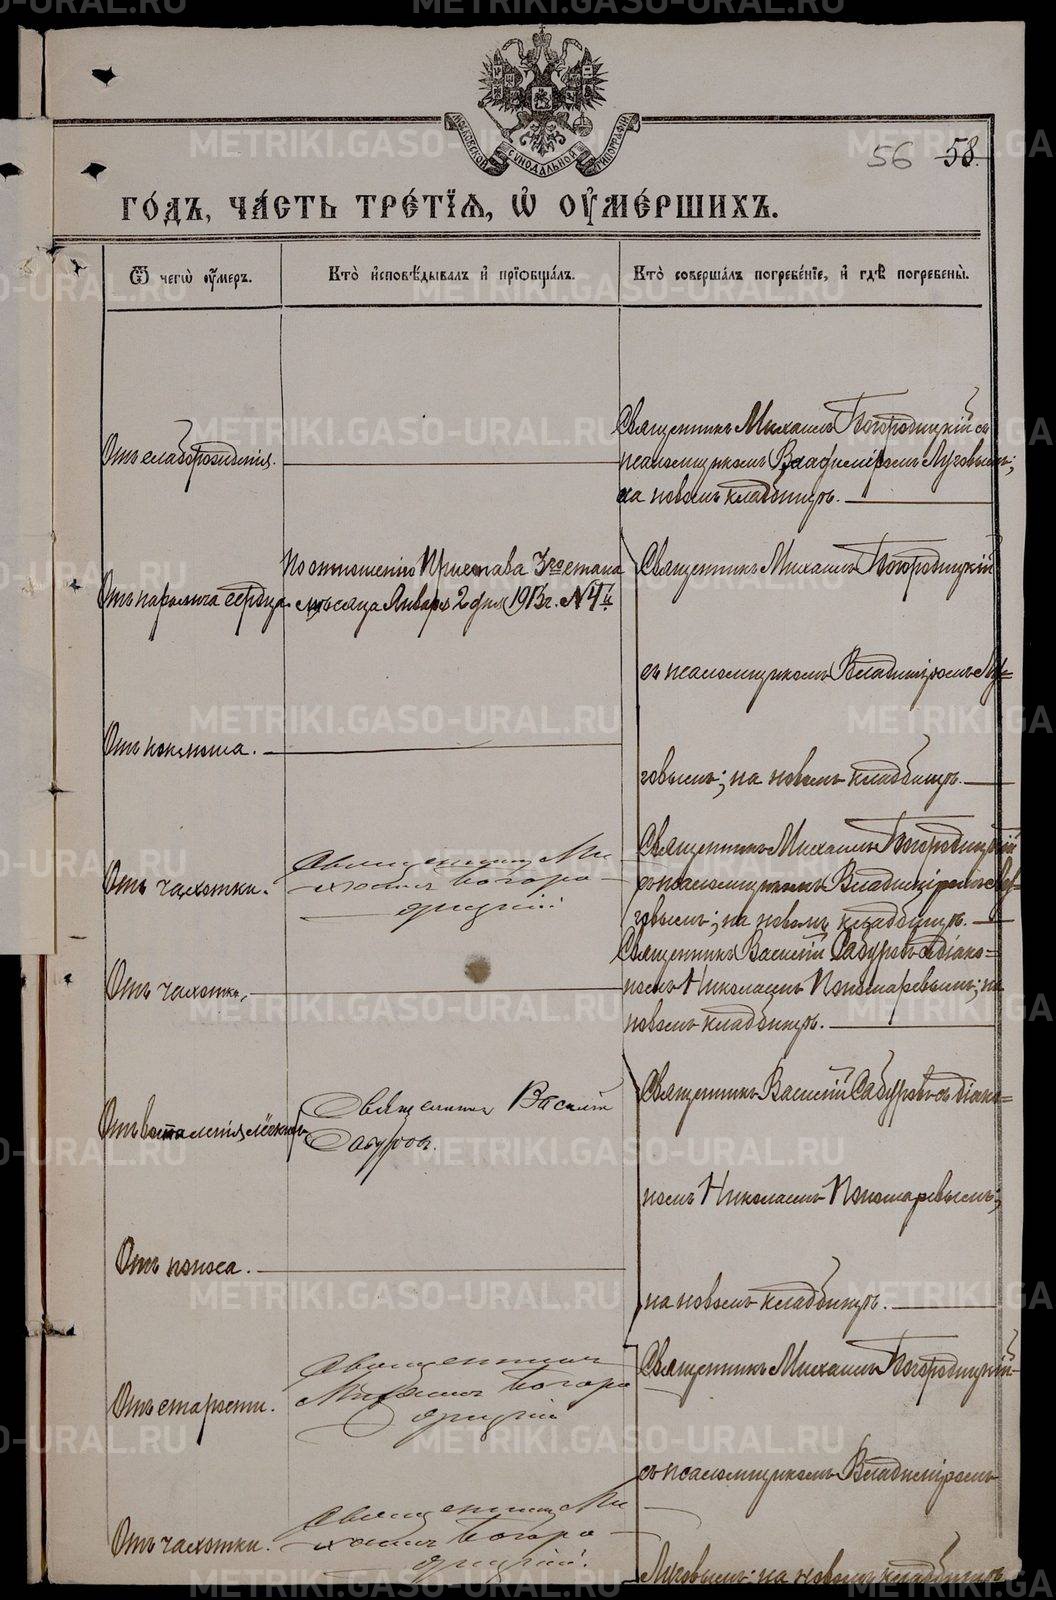 МОСКОВСКОЙ СѴНОДАЛЬНОЙ ТИПОГРАФІИ
56 58.
ГО́ДЪ, ЧА́СТЬ ТРЕ́ТЇѦ, Ѡ҆ ОУ҆МЕ́РШИХЪ.
Ѿ чегѡ̀ оу҆́меръ.
Кто̀ и҆сповѣ́дывалъ и҆ прїѻбща́лъ.
Кто̀ соверша́лъ погребе́нїе, и҆ гдѣ̀ погребены̀.
Отъ слаборожденія.
Священникъ Михаилъ Богородицкій съ
псаломщикомъ Владиміромъ Луговымъ;
на новомъ кладбищѣ.
Отъ паралича сердца
По отношенію Пристава 3го стана
мѣсяца Января 2 дня 1913 г. №4й
Священникъ Михаилъ Богородицкій
съ псаломщикомъ Владиміромъ Лу=
говымъ; на новомъ кладбищѣ.
Отъ коклюша.
Отъ чахотки.
Священникъ Ми
хаилъ Богоро
дицкій
Священникъ Михаилъ Богородицкій
съ псаломщикомъ Владиміромъ Лу=
говымъ; на новомъ кладбищѣ.
Отъ чахотки.
Священникъ Василій Сабуровъ съ діако=
номъ Николаемъ Пономаревымъ; на
новомъ кладбищѣ.
Отъ воспаленія лёгкихъ
Священникъ Василій
Сабуровъ.
Священникъ Василій Сабуровъ съ діако=
номъ Николаемъ Пономаревымъ;
на новомъ кладбищѣ.
Отъ поноса.
Отъ старости.
Священникъ
Михаилъ Богоро
дицкій
Священникъ Михаилъ Богородицкій
съ псаломщикомъ Владиміромъ
Луговымъ; на новомъ кладбищѣ
Отъ чахотки.
Священникъ Ми
хаилъ Богоро
дицкій.
METRIKI.GASO-URAL.RU